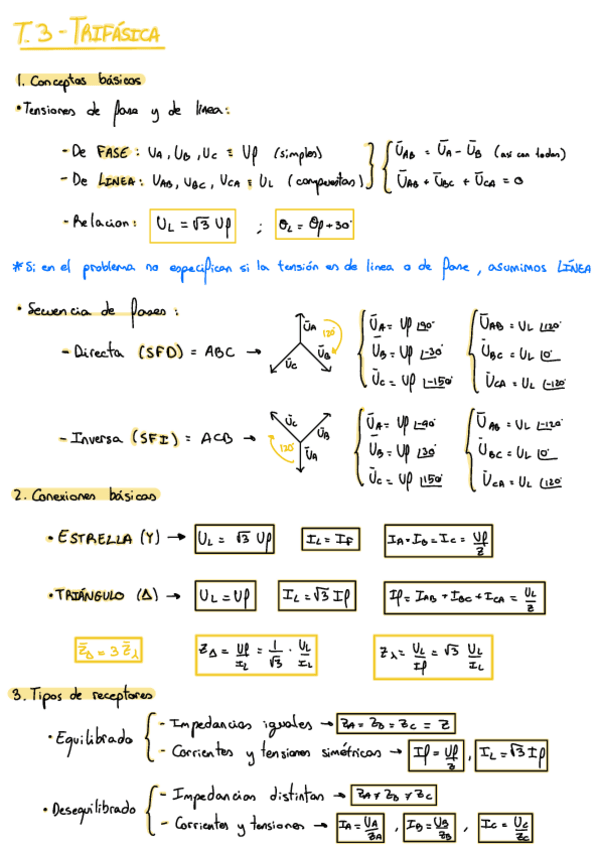 T.3 - TRIFÁSICA
1. Conceptos básicos
• Tensiones de fase y de línea:
- De FASE: UA, UB, UC ≡ Uf (simples)
- De LINEA: UAB, UBC, UCA ≡ UL (compuestas)
ŪAB = ŪA - ŪB (así con todas)
ŪAB + ŪBC + ŪCA = 0
- Relacion: UL = √3 Uf ; θL = θf + 30°
* Si en el problema no especifican si la tensión es de linea o de fase, asumimos LÍNEA
• Secuencia de fases:
- Directa (SFD) = ABC →
ŪA 120° ŪB ŪC
ŪA = Uf ∠90°
ŪB = Uf ∠-30°
ŪC = Uf ∠-150°
ŪAB = UL ∠120°
ŪBC = UL ∠0°
ŪCA = UL ∠-120°
- Inversa (SFI) = ACB →
ŪC ŪB 120° ŪA
ŪA = Uf ∠-90°
ŪB = Uf ∠30°
ŪC = Uf ∠150°
ŪAB = UL ∠-120°
ŪBC = UL ∠0°
ŪCA = UL ∠120°
2. Conexiones básicas
• ESTRELLA (Y) → UL = √3 Uf IL = If IA = IB = IC = Uf/Z
• TRIÁNGULO (Δ) → UL = Uf IL = √3 If If = IAB = IBC = ICA = UL/Z
Z̄Δ = 3 Z̄λ ZΔ = Uf/IL = 1/√3 · UL/IL Zλ = UL/If = √3 UL/IL
3. Tipos de receptores
• Equilibrado
- Impedancias iguales → ZA = ZB = ZC = Z
- Corrientes y tensiones simétricas → If = Uf/Z , IL = √3 If
• Desequilibrado
- Impedancias distintas → ZA ≠ ZB ≠ ZC
- Corrientes y tensiones → IA = UA/ZA , IB = UB/ZB , IC = UC/ZC